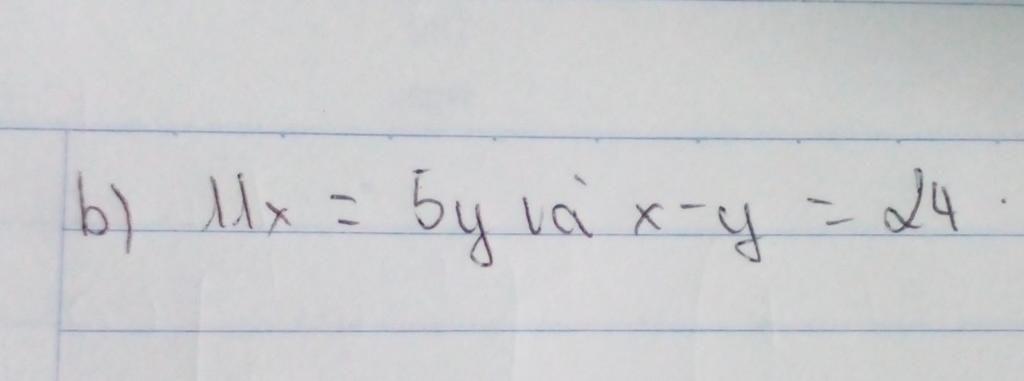 b) 11x = 5y và x-y = 24.